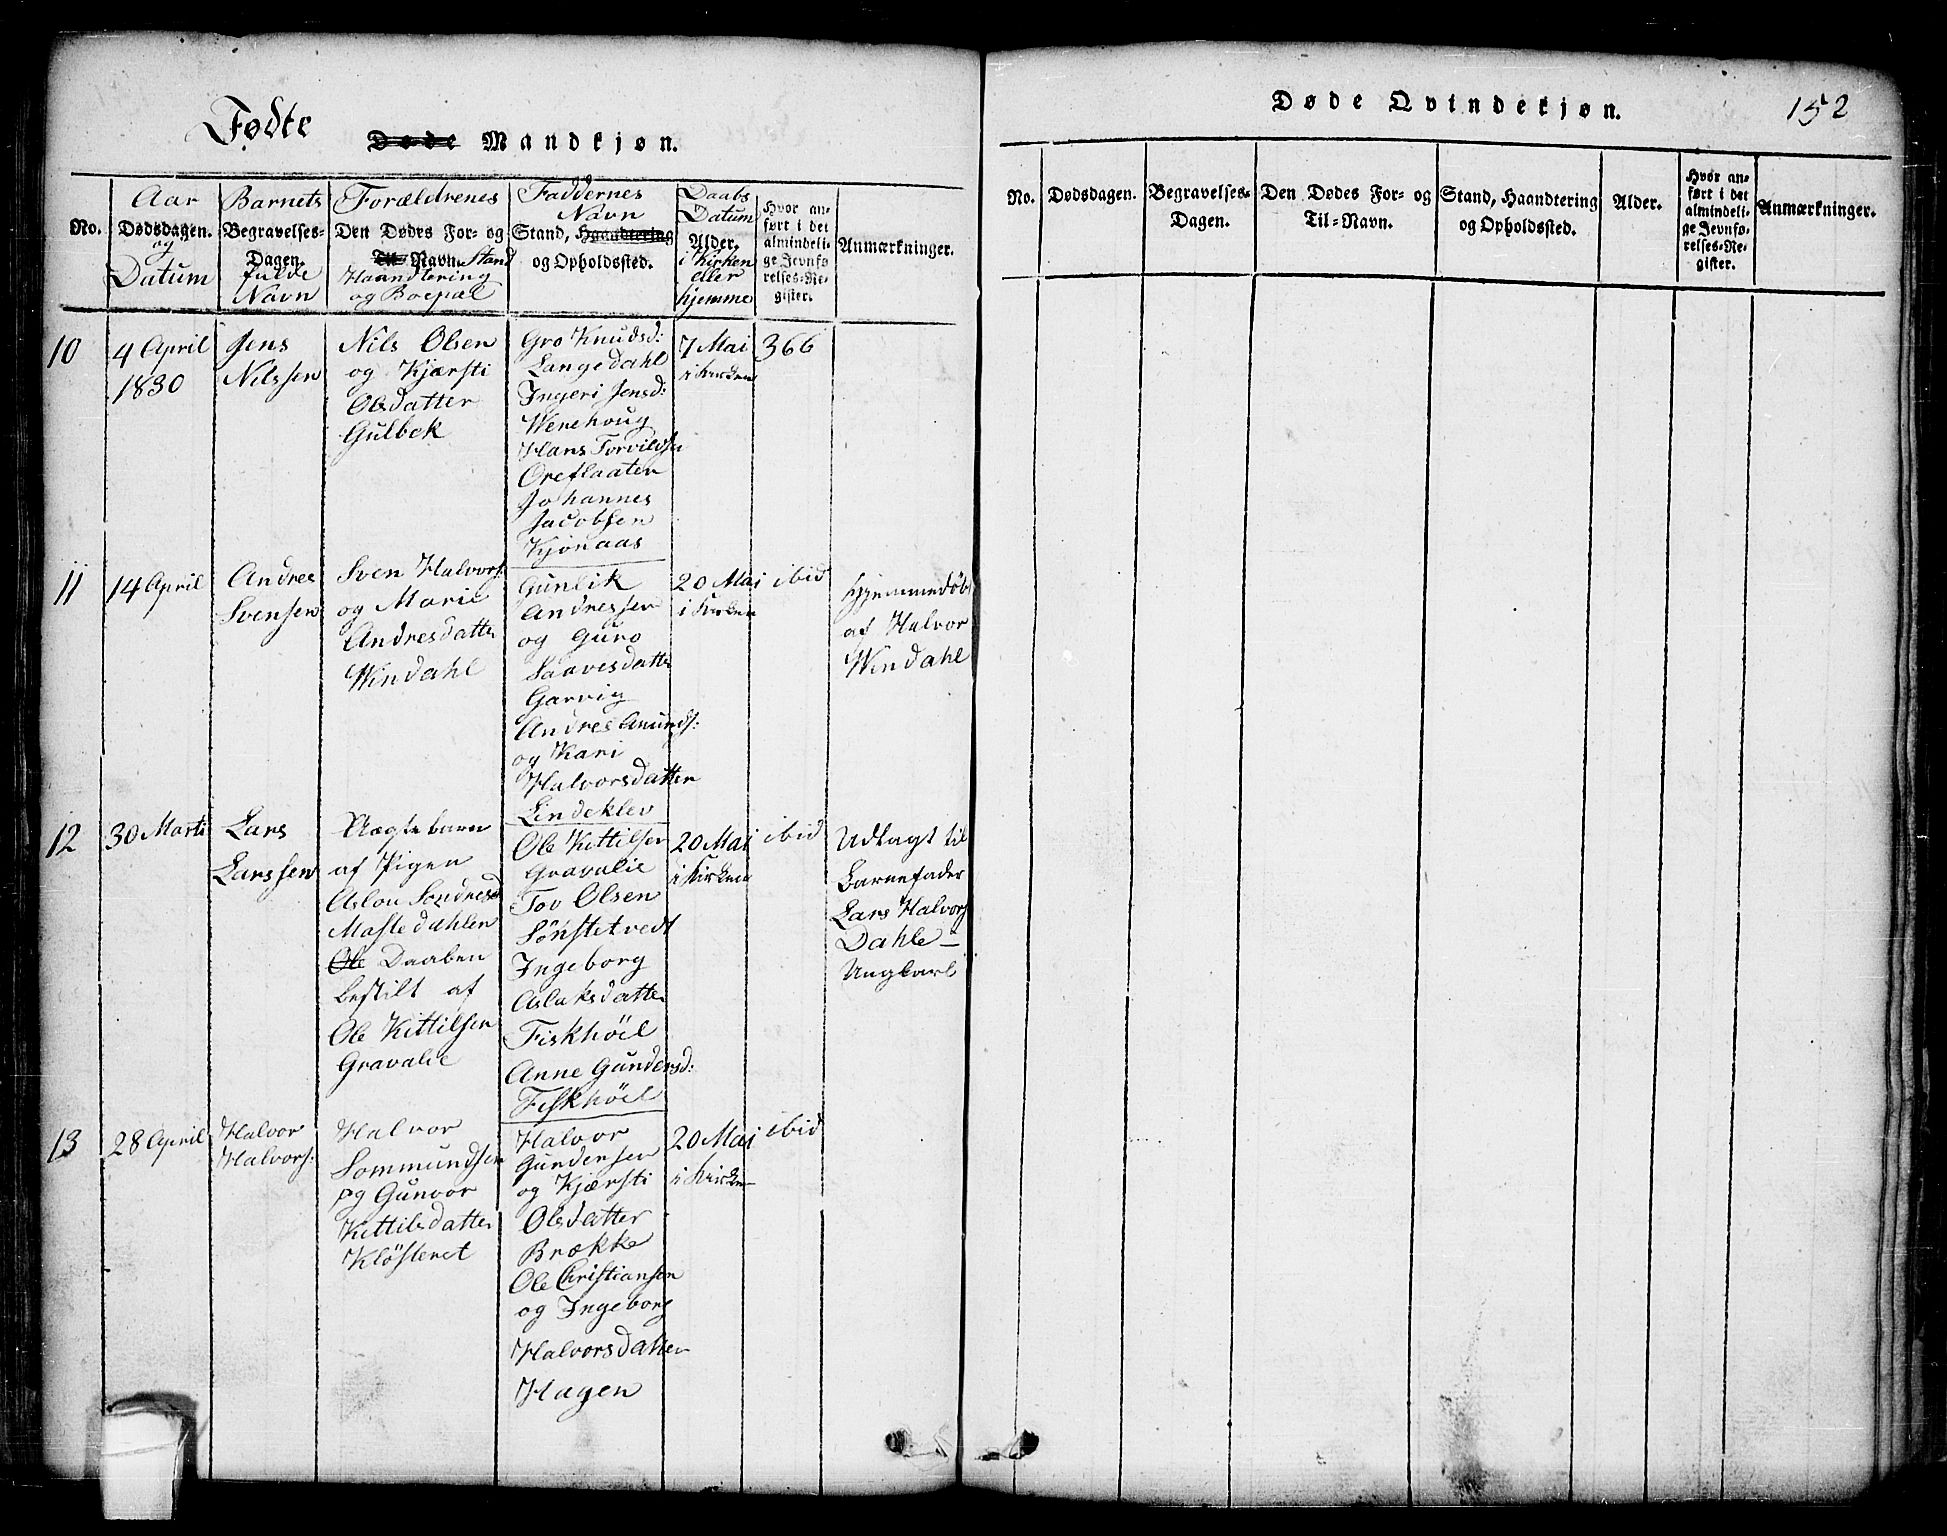 Fødte
Døde Mandkjøn.
No.
Aar
Dødsdagen.
og
Datum
Barnets
Begravelses-
Dagen.
fulde
Navn
Forældrenes
Den Dødes For- og
Til-Navn. Stand
Haandtering
og Boepæl
Faddernes
Navn
Stand, Haandtering
og Opholdssted.
Daabs
Datum
Alder.
i Kirken
eller
hjemme
Hvor an-
ført i det
almindeli-
ge Jevnfø-
relses-Re-
gister.
Anmærkninger.
10
4 April
1830
Jens
Nilssen
Nils Olsen
og Kjærsti
Olsdatter
Gulbek
Gro Knudsd:
Langedahl
Ingeri Jensd:
Werehoug
Hans Torvildsen
Oreflaaten
Johannes
Jacobsen
Kjønaas
7 Mai
i Kirken
366
11
14 April
Andres
Svensen
Sven Halvors:
og Marie
Andresdatter
Windahl
Gunlik
Andressen
og Guro
Saavesdatter
Garvig
Andres Amunds:
og Kari
Halvorsdatter
Lindeklev
20 Mai
i Kirken
ibid
Hjemmedøbt
af Halvor
Windahl
12
30 Marti
Lars
Larssen
Uægte barn
af Pigen
Aslou Sondresd
Mastedahlen
Ole Daaben
bestilt af
Ole Kittilsen
Gravalie
Ole Kittilsen
Gravalie
Tov Olsen
Sønstetvedt
Ingeborg
Aslaksdatter
Fiskhöil
Anne Gundersd:
Fiskhöil
20 Mai
i Kirken
ibid
Udlagt til
Barnefader
Lars Halvors
Dahle –
Ungkarl
13
28 April
Halvor
Halvors:
Halvor
Sommundsen
og Gunvor
Kittilsdatter
Klösteret
Halvor
Gundersen
og Kjærsti
Olsdatter
Brække
Ole Christiansen
og Ingeborg
Halvorsdatter
Hagen
20 Mai
i Kirken
ibid
Døde Qvindekjøn.
152
No.
Dødsdagen.
Begravelses-
Dagen.
Den Dødes For- og
Til-Navn.
Stand, Haandtering
og Opholdssted.
Alder.
Hvor an-
ført i det
almindeli-
ge Jevnfø-
relses-Re-
gister.
Anmærkninger.